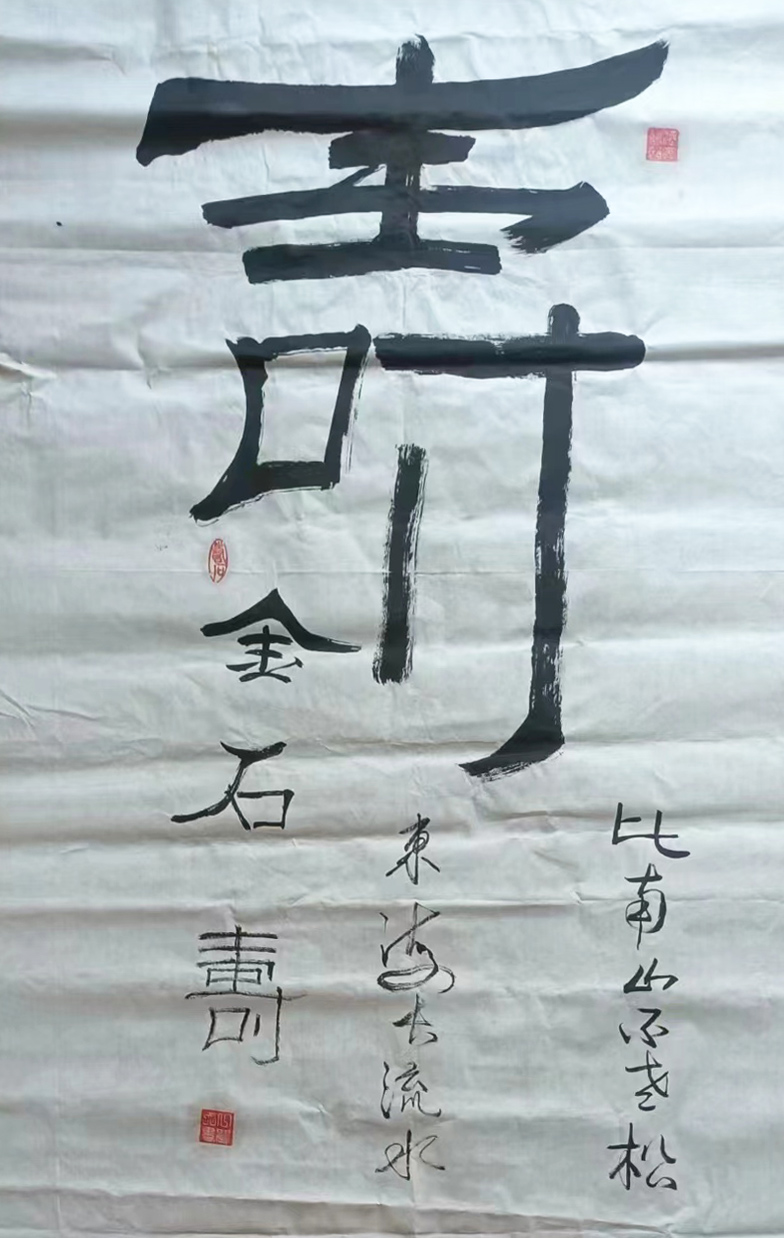 壽
比南山不老松
東海长流水
金石壽